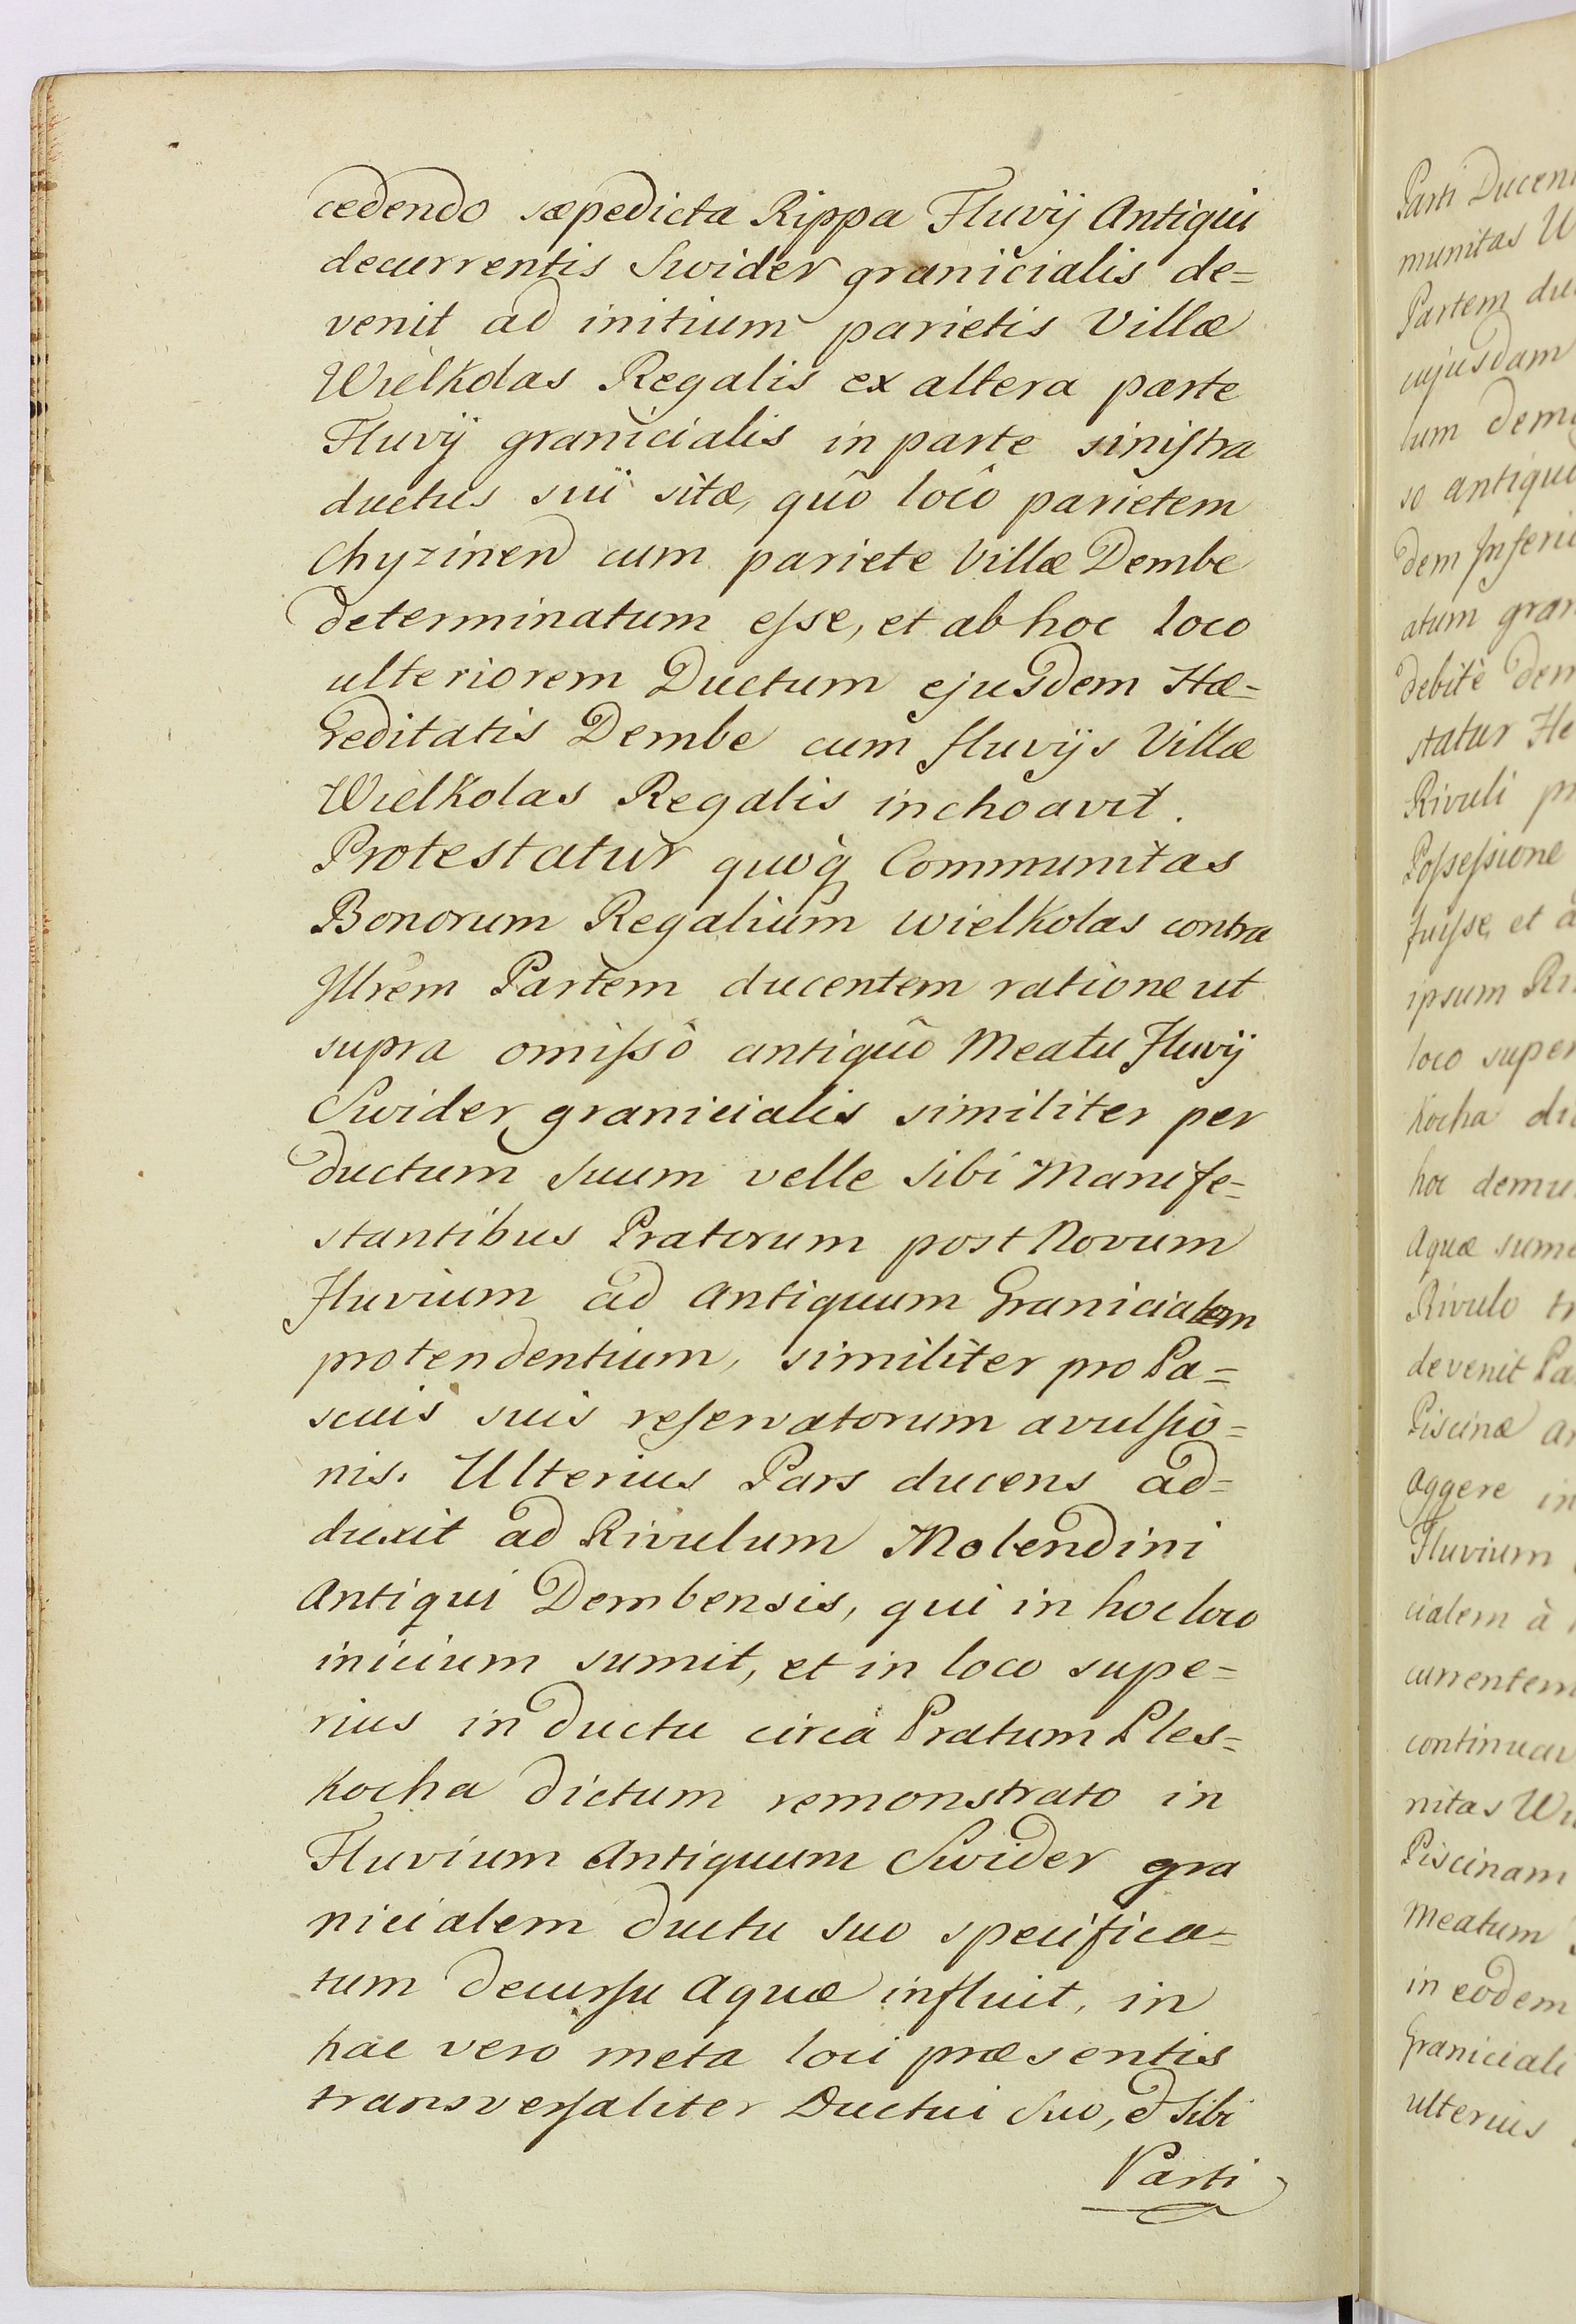 cedendo sæpedicta Rippa Fluvij Antiqui
decurrentis Swider granicialis de=
venit ad initium parietis Villæ
Wielkolas Regalis ex altera parte
Fluvij granicialis in parte sinistra
ductus sui sitæ, quô locô parietem
Chyzinen cum pariete Villæ Dembe
determinatum esse, et ab hoc loco
ulteriorem Ductum ejusdem Hæ=
reditatis Dembe cum fluvijs Villæ
Wielkolas Regalis inchoavit.
Protestatur quoq Communitas
Bonorum Regalium Wielkolas contra
Illrem Partem ducentem ratione ut
supra omissô antiquô Meatu Fluvij
Swider granicialis similiter per
ductum suum velle sibi Manife=
stantibus Pratorum post Novum
Fluvium ad Antiquum Granicialem
protendentium, similiter pro Pa=
scuis suis reservatorum avulsio=
nis. Ulterius Pars ducens ad=
duxit ad Rivulum Molendini
Antiqui Dembensis, qui in hoc loco
inicium sumit, et in loco supe=
rius in ductu circa Pratum Ples=
kocha dictum remonstrato in
Fluvium Antiquum Swider gra
nicialem ductu suo specifica=
tum decursu Aquæ influit, in
hac vero meta loci præsentis
transversaliter Ductui Suo, & Sibi
Parti
Parti Ducen
munitas W
Partem du
cujusdam
lum dem
so antiqu
dem Inferi
atum gran
debitè dem
statur He
Rivuli pr
Possessione
fuisse, et a
ipsum Ri
loco super
Kocha di
hoc demu
Aquæ sum
Rivulo tr
devenit Pa
Piscinæ an
Aggere in
Fluvium
cialem à
currentem
continuav
nitas Wi
Piscinam
Meatum
in eodem
Graniciali
ulterius